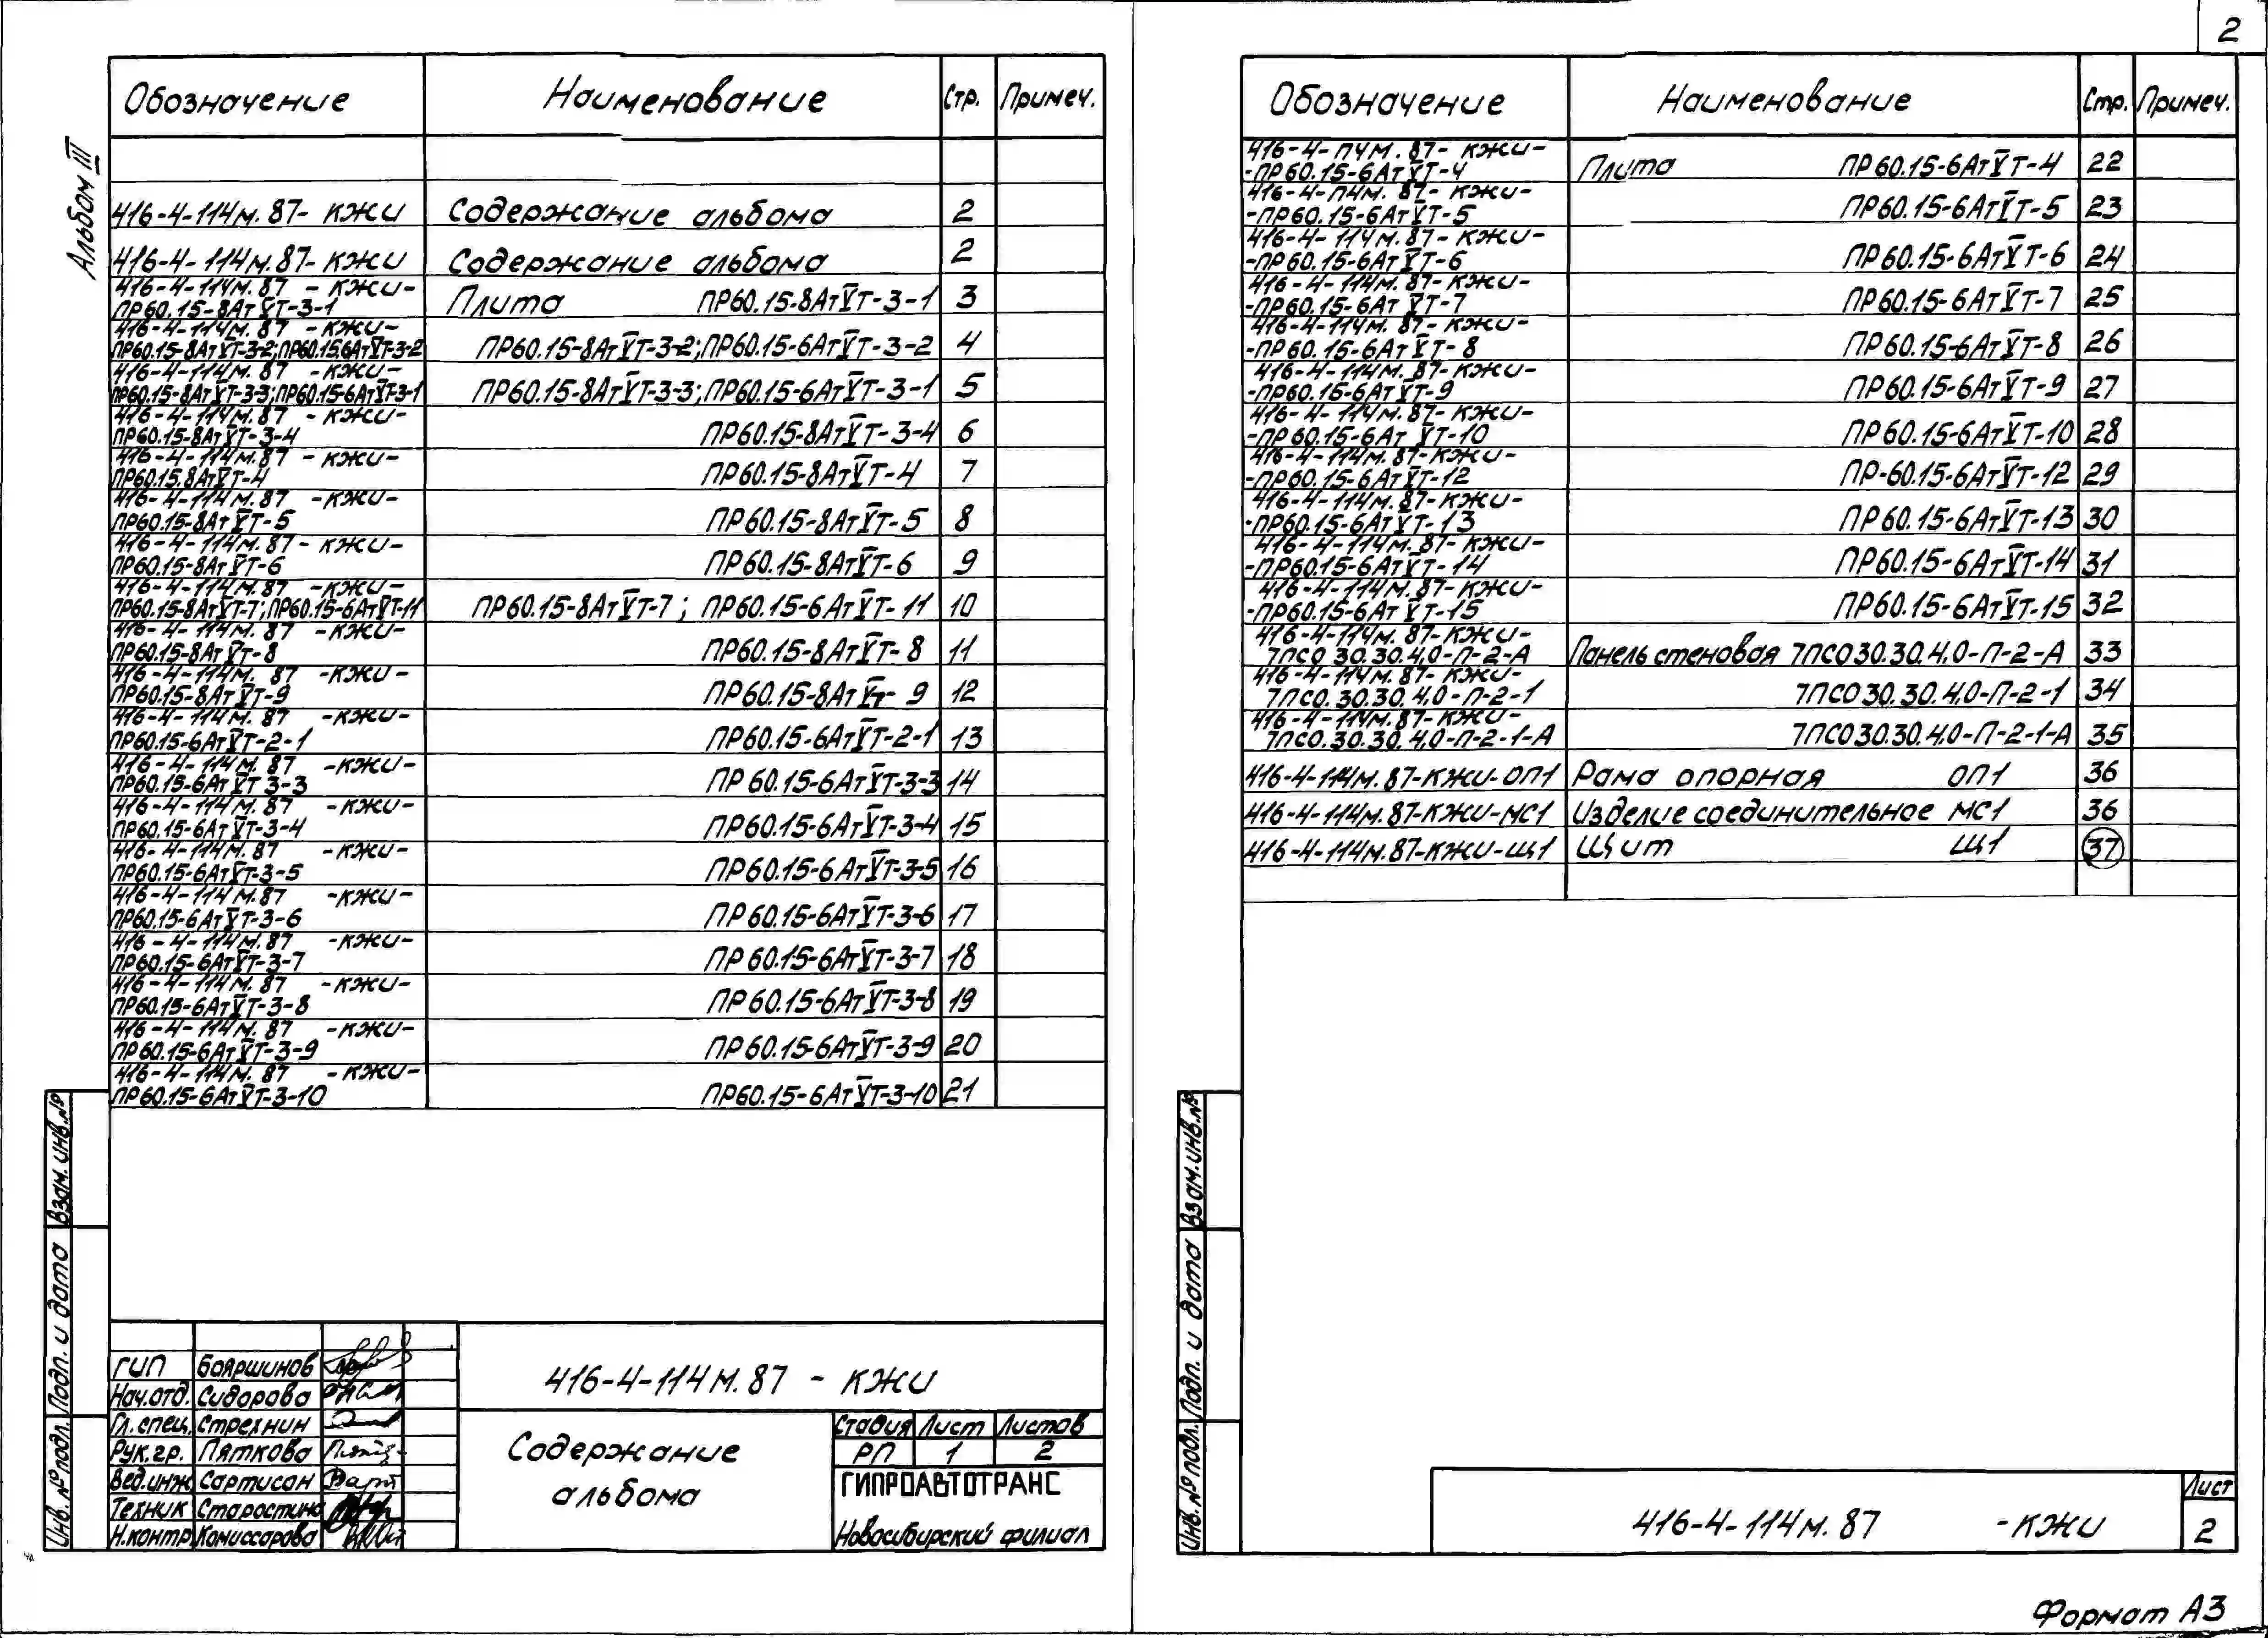 2
Альбом III
Обозначение Наименование Стр. Примеч.
416-4-114м.87- КЖИ Содержание альбома 2
416-4-114м.87-КЖИ Содержание альбома 2
416-4-114м.87 - КЖИ-
ПР60.15-8АтV̅Т-3-1 Плита ПР60.15-8АтV̅Т-3-1 3
416-4-114м.87 -КЖИ-
ПР60.15-8АтV̅Т-3-2;ПР60.15.6АтV̅Т-3-2 ПР60.15-8АтV̅Т-3-2;ПР60.15-6АтV̅Т-3-2 4
416-4-114м.87 -КЖИ-
ПР60.15-8АтV̅Т-3-3;ПР60.15-6АтV̅Т-3-1 ПР60.15-8АтV̅Т-3-3;ПР60.15-6АтV̅Т-3-1 5
416-4-114м.87 - КЖИ-
ПР60.15-8АтV̅Т-3-4 ПР60.15-8АтV̅Т-3-4 6
416-4-114м.87 - КЖИ-
ПР60.15.8АтV̅Т-4 ПР60.15-8АтV̅Т-4 7
416-4-114м.87 -КЖИ-
ПР60.15-8АтV̅Т-5 ПР60.15-8АтV̅Т-5 8
416-4-114м.87- КЖИ-
ПР60.15-8АтV̅Т-6 ПР60.15-8АтV̅Т-6 9
416-4-114м.87 -КЖИ-
ПР60.15-8АтV̅Т-7;ПР60.15-6АтV̅Т-11 ПР60.15-8АтV̅Т-7; ПР60.15-6АтV̅Т-11 10
416-4-114м.87 -КЖИ-
ПР60.15-8АтV̅Т-8 ПР60.15-8АтV̅Т-8 11
416-4-114м.87 -КЖИ-
ПР60.15-8АтV̅Т-9 ПР60.15-8АтV̅Т-9 12
416-4-114м.87 -КЖИ-
ПР60.15-6АтV̅Т-2-1 ПР60.15-6АтV̅Т-2-1 13
416-4-114м.87 -КЖИ-
ПР60.15-6АтV̅Т 3-3 ПР60.15-6АтV̅Т-3-3 14
416-4-114м.87 -КЖИ-
ПР60.15-6АтV̅Т-3-4 ПР60.15-6АтV̅Т-3-4 15
416-4-114м.87 -КЖИ-
ПР60.15-6АтV̅Т-3-5 ПР60.15-6АтV̅Т-3-5 16
416-4-114м.87 -КЖИ-
ПР60.15-6АтV̅Т-3-6 ПР60.15-6АтV̅Т-3-6 17
416-4-114м.87 -КЖИ-
ПР60.15-6АтV̅Т-3-7 ПР60.15-6АтV̅Т-3-7 18
416-4-114м.87 -КЖИ-
ПР60.15-6АтV̅Т-3-8 ПР60.15-6АтV̅Т-3-8 19
416-4-114м.87 -КЖИ-
ПР60.15-6АтV̅Т-3-9 ПР60.15-6АтV̅Т-3-9 20
416-4-114м.87 -КЖИ-
ПР60.15-6АтV̅Т-3-10 ПР60.15-6АтV̅Т-3-10 21
Взам.инв.№
Подп. и дата
Инв.№подл.
ГИП Бояршинов
Нач.отд. Сидорова
Гл.спец. Стрехнин
Рук.гр. Пяткова
Вед.инж Сартисон
Техник Старостина
Н.контр Комиссарова
416-4-114м.87 - КЖИ
Содержание
альбома
Стадия Лист Листов
РП 1 2
ГИПРОАВТОТРАНС
Новосибирский филиал
Обозначение Наименование Стр. Примеч.
416-4-114м.87- КЖИ-
-ПР60.15-6АтV̅Т-4 Плита ПР60.15-6АтV̅Т-4 22
416-4-114м.87- КЖИ-
-ПР60.15-6АтV̅Т-5 ПР60.15-6АтV̅Т-5 23
416-4-114м.87- КЖИ-
-ПР60.15-6АтV̅Т-6 ПР60.15-6АтV̅Т-6 24
416-4-114м.87- КЖИ-
-ПР60.15-6АтV̅Т-7 ПР60.15-6АтV̅Т-7 25
416-4-114м.87- КЖИ-
-ПР60.15-6АтV̅Т-8 ПР60.15-6АтV̅Т-8 26
416-4-114м.87-КЖИ-
-ПР60.15-6АтV̅Т-9 ПР60.15-6АтV̅Т-9 27
416-4-114м.87- КЖИ-
-ПР60.15-6АтV̅Т-10 ПР60.15-6АтV̅Т-10 28
416-4-114м.87-КЖИ-
-ПР60.15-6АтV̅Т-12 ПР-60.15-6АтV̅Т-12 29
416-4-114м.87-КЖИ-
-ПР60.15-6АтV̅Т-13 ПР60.15-6АтV̅Т-13 30
416-4-114м.87- КЖИ-
-ПР60.15-6АтV̅Т-14 ПР60.15-6АтV̅Т-14 31
416-4-114м.87-КЖИ-
-ПР60.15-6АтV̅Т-15 ПР60.15-6АтV̅Т-15 32
416-4-114м.87-КЖИ-
7ПСО 30.30.4,0-П-2-А Панель стеновая 7ПСО30.30.4,0-П-2-А 33
416-4-114м.87-КЖИ-
7ПСО.30.30.4,0-П-2-1 7ПСО30.30.4,0-П-2-1 34
416-4-114м.87-КЖИ-
7ПСО.30.30.4,0-П-2-1-А 7ПСО30.30.4,0-П-2-1-А 35
416-4-114м.87-КЖИ-ОП1 Рама опорная ОП1 36
416-4-114м.87-КЖИ-МС1 Изделие соединительное МС1 36
416-4-114м.87-КЖИ-Щ1 Щит Щ1 37
Взам.инв.№
Подп. и дата
Инв.№подл.
416-4-114м.87 -КЖИ
Лист
2
Формат А3